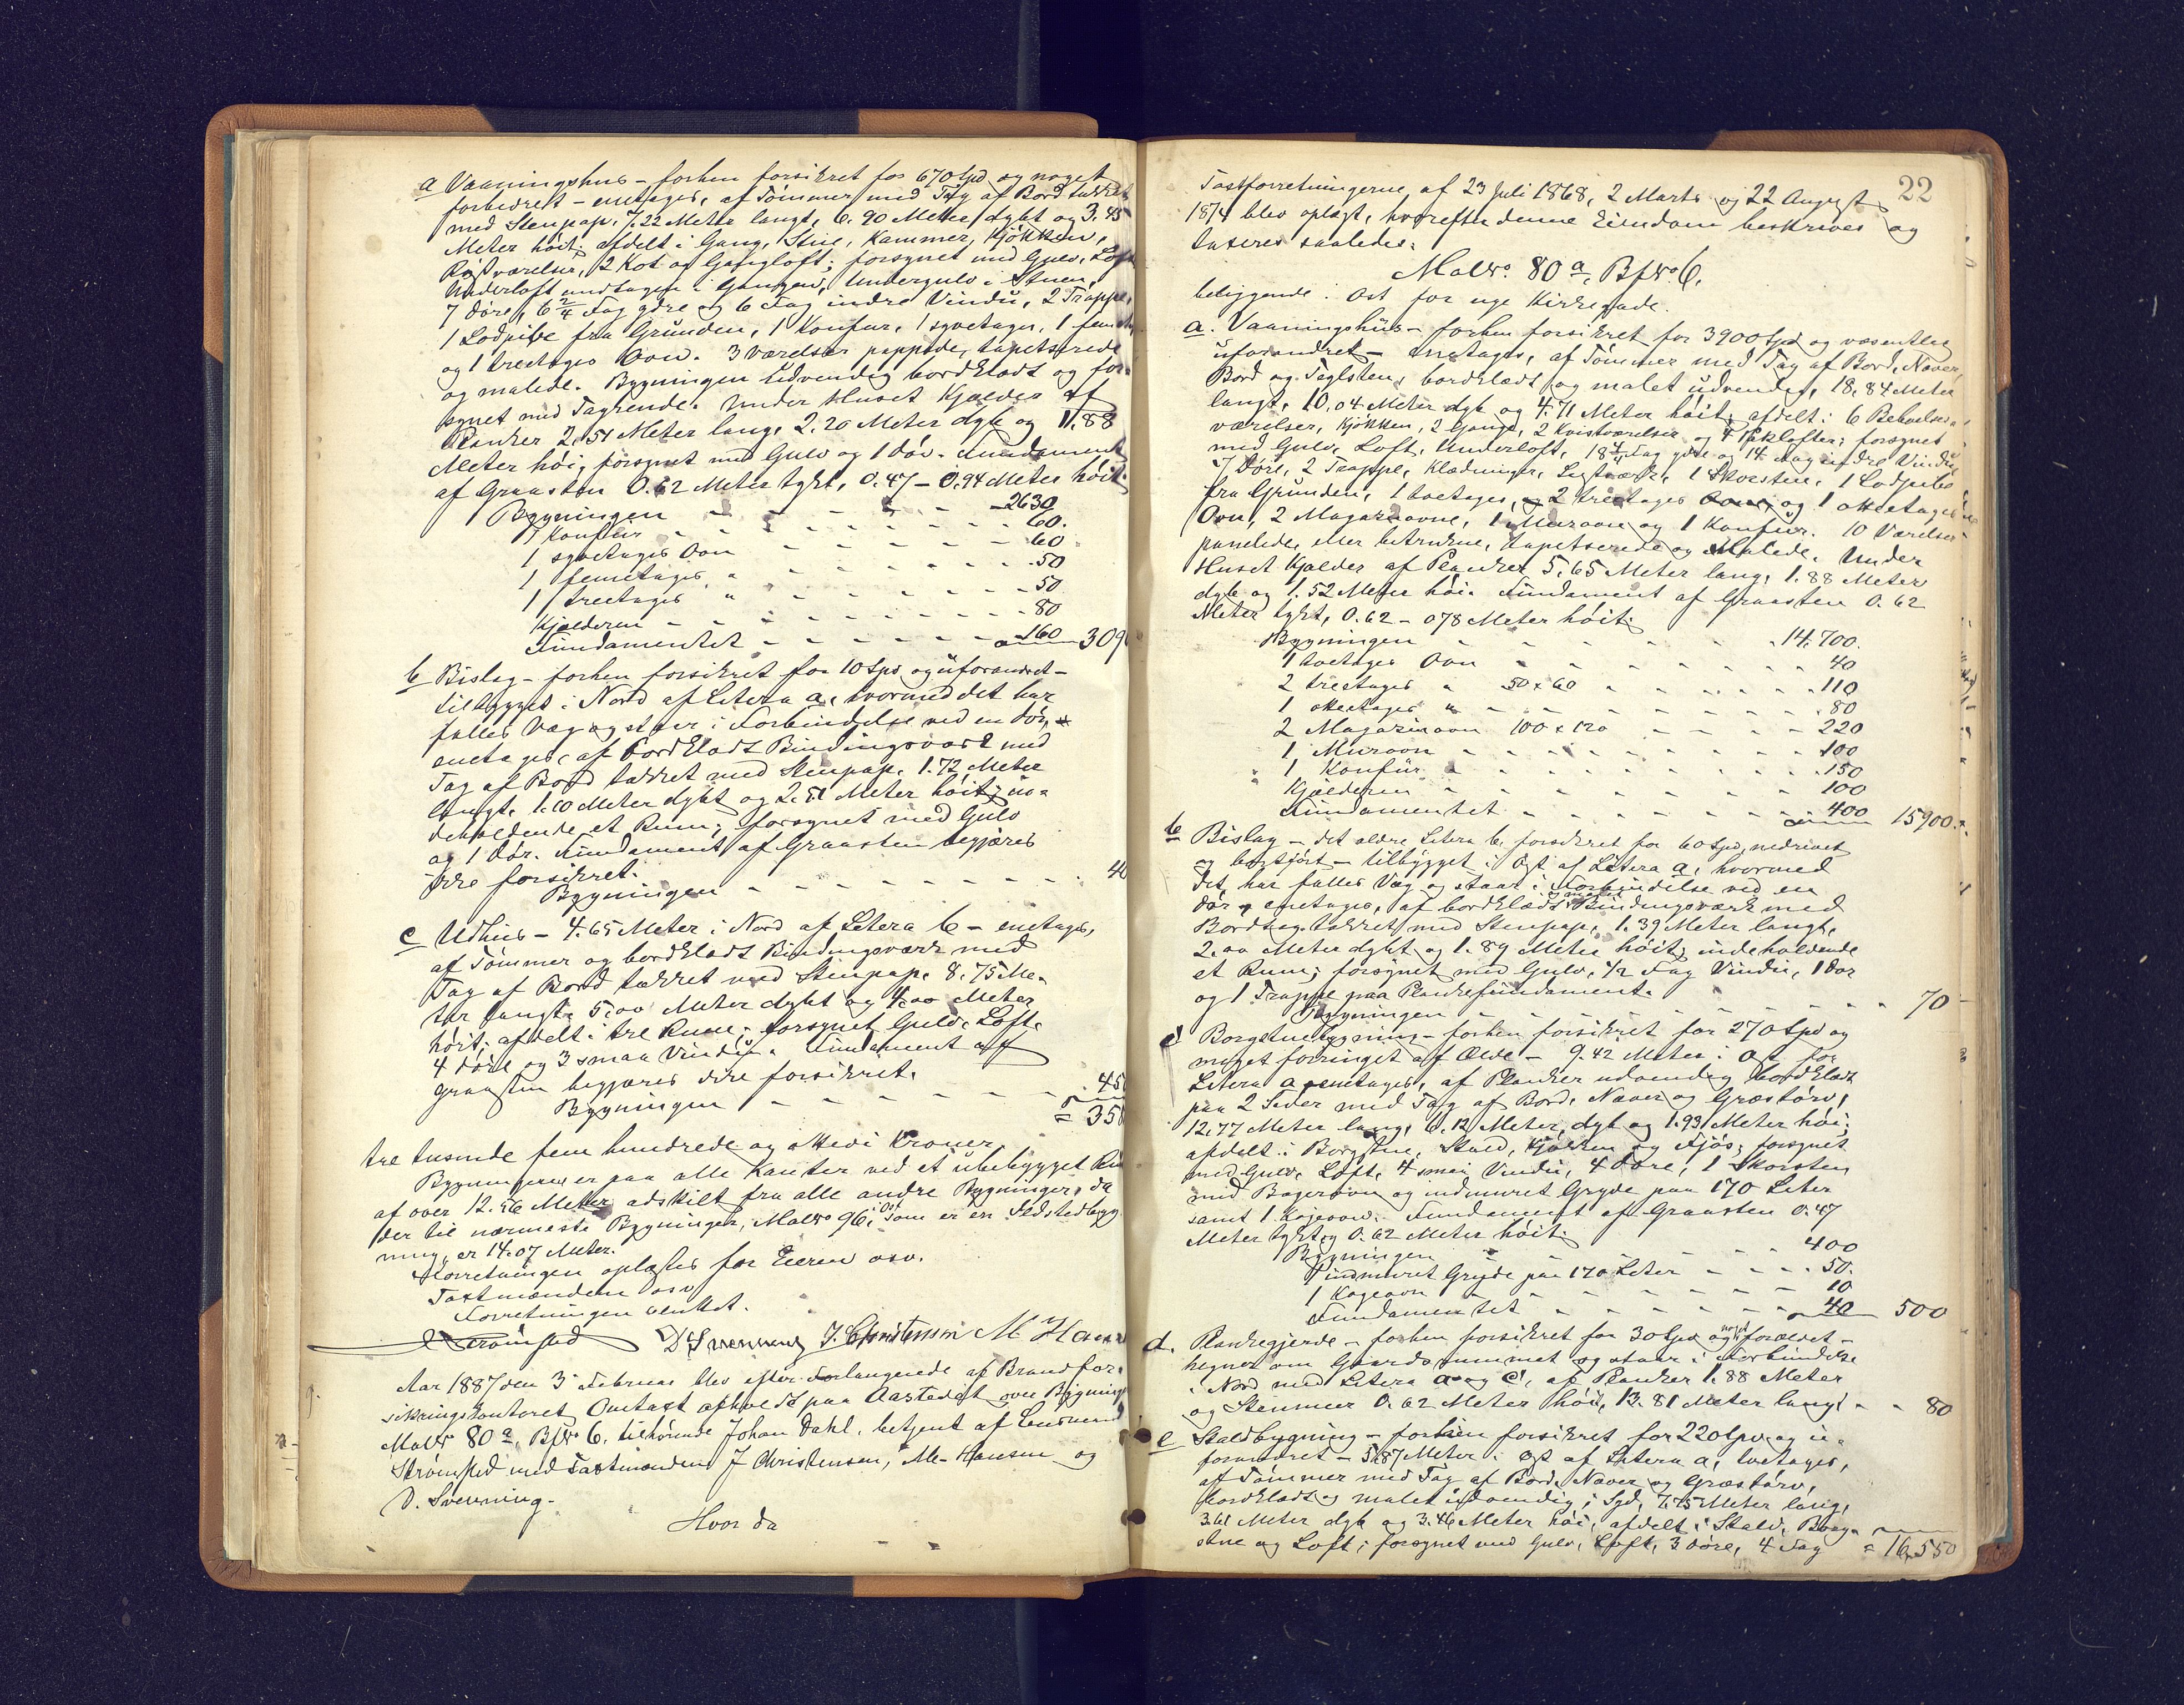 a Vaaningshus – forhen forsikret for 670 Spd og noget
forbedret – enetages, af Tømmer med Tag af Bord tækket
med Stenpap. 7.22 Meter langt, 6.90 Meter dybt og 3.45
Meter høit; afdelt i Gang, Stue, Kammer, Kjøkken,
værelser, 2 Kot og Gangloft; forsynet med Gulv, Loft
Underloft undtagen i Gangen, Undergulv i Stuen,
7 Døre, 6 2/4 Fag ydre og 6 Fag indre Vindu, 2 Trappe,
1 Lodpibe fra Grunden, 1 Konfur, 1 syvetages, 1 fem
og 1 treetages Ovn. 3 Værelser pappede, tapetserede
og malede. Bygningen udvendig bordklædt og for-
synet med Tagrende. Under Huset Kjælder af
Planker 2.51 Meter lang, 2.20 Meter dyb og 1.88
Meter høi, forsynet med Gulv og 1 Dør. Fundament
af Graasten 0.62 Meter tykt, 0.47 – 0.94 Meter høit.
Bygningen – – – – – 2630
1 Konfur – – – – – 60.
1 syvetages Ovn – – – – – 60
1 femetages " – – – – – 50
1 treetages " – – – – – 50
Kjælderen – – – – – 80
Fundamentet – – – – – 160 309
b Bislag – forhen forsikret for 10 Spd og uforandret –
tilbygget i Nord af Litera a, hvormed det har
fælles Væg og staar i Forbindelse ved en Dør,
enetages, af bordklædt Bindingsværk med
Tag af Bord tækket med Stenpap, 1.72 Meter
langt, 1.10 Meter dybt og 2.51 Meter høit; in-
deholdende et Rum; forsynet med Gulv
og 1 Dør. Fundament af Graasten begjæres
ikke forsikret.
Bygningen – – – – – 40
c Udhus – 4.65 Meter i Nord af Litera b – enetages,
af Tømmer og bordklædt Bindingsværk med
Tag af Bord tækket med Stenpap. 8.75 Me-
ter langt, 5.00 Meter dybt og 4.00 Meter
høit; afdelt i tre Rum; forsynet Gulv, Loft,
4 Døre og 3 smaa Vindu. Fundament af
graasten begjæres ikke forsikret.
Bygningen – – – – – 45
= 358
tre tusinde fem hundrede og otteti Kroner.
Bygningerne er paa alle Kanter ved et ubebygget Rum
af over 12.56 Meter adskilt fra alle andre Bygninger, da
der til nærmeste Bygningen, Matr No 96, i Ost som er en Ildstedbyg
ning, er 14.07 Meter.
Forretningen oplæstes for Eieren osv.
Taxtmændene osv
Forretningen sluttet.
Strömsted D Svenning J. Christensen M Hansen
Aar 1887 den 3 Februar blev efter Forlangende af Brandfor-
sikringskontoret Omtaxt afholdt paa Aastedet over Bygning
Matr No 80 a, Bf No 6, tilhørende Johan Dahl, betjent af Lensmand
Strømsted med Taxtmændene J Christensen, M. Hansen og
D. Svenning.
Hvor da
22
Taxtforretningerne af 23 Juli 1868, 2 Marts og 22 August
1874 blev oplagt, hvorefter denne Eiendom beskrives og
taxeres saaledes:
Matr No. 80 a, Bf No 6.
beliggende i Ost for nye Kirkegade.
a. Vaaningshus – forhen forsikret for 3900 Spd og væsentlig
uforandret – enetages, af Tømmer med Tag af Bord, Næver,
Bord og Teglsten, bordklædt og malet udvendig, 18.84 Meter
langt, 10.04 Meter dyb og 4.71 Meter høit; afdelt i 6 Beboelses-
værelser, Kjøkken, 2 Gange, 2 Kvistværelser og 4 Mørklofter; forsynet
med Gulv, Loft, Underloft, 18 4/4 Fag ydre og 14 Fag indre Vindu,
7 Døre, 2 Trappe, Klædninger, Listværk, 1 Skorsten, 1 Lodpibe
fra Grunden, 1 toetages, 2 treetages og 1 ottetages
Ovn, 2 Magazinovne, 1 Murovn og 1 Konfur. 10 Værelser
panelede, eller betrukne, tapetserede og malede. Under
Huset Kjælder af Planker 5.65 Meter lang, 1.88 Meter
dyb og 1.52 Meter høi. Fundament af Graasten 0.62
Meter tykt, 0.62 – 078 Meter høit.
Bygningen – – – – – 14,700.
1 toetages Ovn – – – – – 40
2 treetages " 50 + 60 – – – – – 110
1 ottetages " – – – – – 80
2 Magazinovn 100 + 120 – – – – 220
1 Murovn – – – – – 100
1 Konfur – – – – – 150
Kjælderen – – – – – 100
Fundamentet – – – – – 400 15900.
b Bislag – det ældre Litera b, forsikret for 60 Spd, nedrivet
og bortkjørt – tilbygget i Ost af Litera a, hvormed
det har fælles Væg og staar i Forbindelse ved en
Dør, enetages, af bordklædt og malet Bindingsværk med
Bordtag tækket med Stenpap, 1.39 Meter langt,
2.00 Meter dybt og 1.89 Meter høit; indeholdende
et Rum; forsynet med Gulv, 1/2 Fag Vindu, 1 Dør
og 1 Trappe paa Plankefundament.
Bygningen – – – – – 70
c Borgstuebygning – forhen forsikret for 270 Spd og
meget forringet af Ælde – 9.42 Meter i Ost for
Litera a enetages, af Planker udvendig bordklædt
paa 2 Sider med Tag af Bord, Næver og Græstørv,
12.77 Meter lang, 6.12 Meter dyb og 1.93 Meter høi;
afdelt i Borgstue, Stald, Kjøkken og Fjøs; forsynet
med Gulv, Loft, 4 smaa Vindu, 4 Døre, 1 Skorsten
med Bagerovn og indmuret Gryde paa 170 Liter
samt 1 Kogeovn. Fundament af Graasten 0.47
Meter tykt og 0.62 Meter høit.
Bygningen – – – – – 400
1 indmuret Gryde paa 170 Liter – – – 50.
1 Kogeovn – – – – – 10
Fundamentet – – – – – 40 500
d. Plankegjerde – forhen forsikret for 30 Spd og noget forældet –
hegner om Gaardsrummet og staar i Forbindelse
i Nord med Litera a og c, af Planker 1.88 Meter
og Stenmur 0.62 Meter høit, 13.81 Meter langt – – 80
e Staldbygning – forhen forsikret for 220 Spd og u-
forandret – 5.87 Meter i Ost af Litera a, toetages,
af Tømmer med Tag af Bord, Næver og Græstørv,
bordklædt og malet udvendig i Syd, 7.75 Meter lang,
3.61 Meter dyb og 3.46 Meter høi, afdelt i Stald, Borg-
stue og Loft; forsynet med Gulv, Loft, 3 Døre, 4 Fag = 16,550